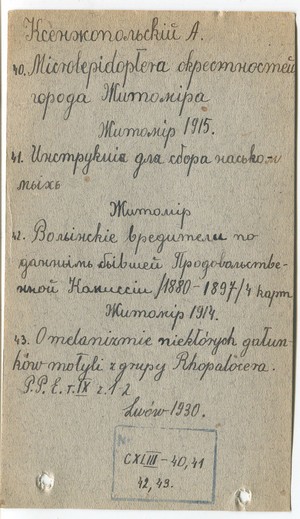 Ксенжопольскій А.
40. Microlepidoptera окрестностей
города Житоміра
Житомір 1915.
41. Инструкція для сбора насько-
мыхъ
Житомір
42. Волынскіе вредители по
даннымъ бывшей Продовольстве-
нной Комиссіи /1880-1897/4 карт
Житомір 1914.
43. O melanizmie niektórych gatun-
ków motyli z grupy Rhopalocera.
P.P.E. т. IX z. 1 2
Lwów 1930.
№
CXLIII - 40, 41
42, 43.